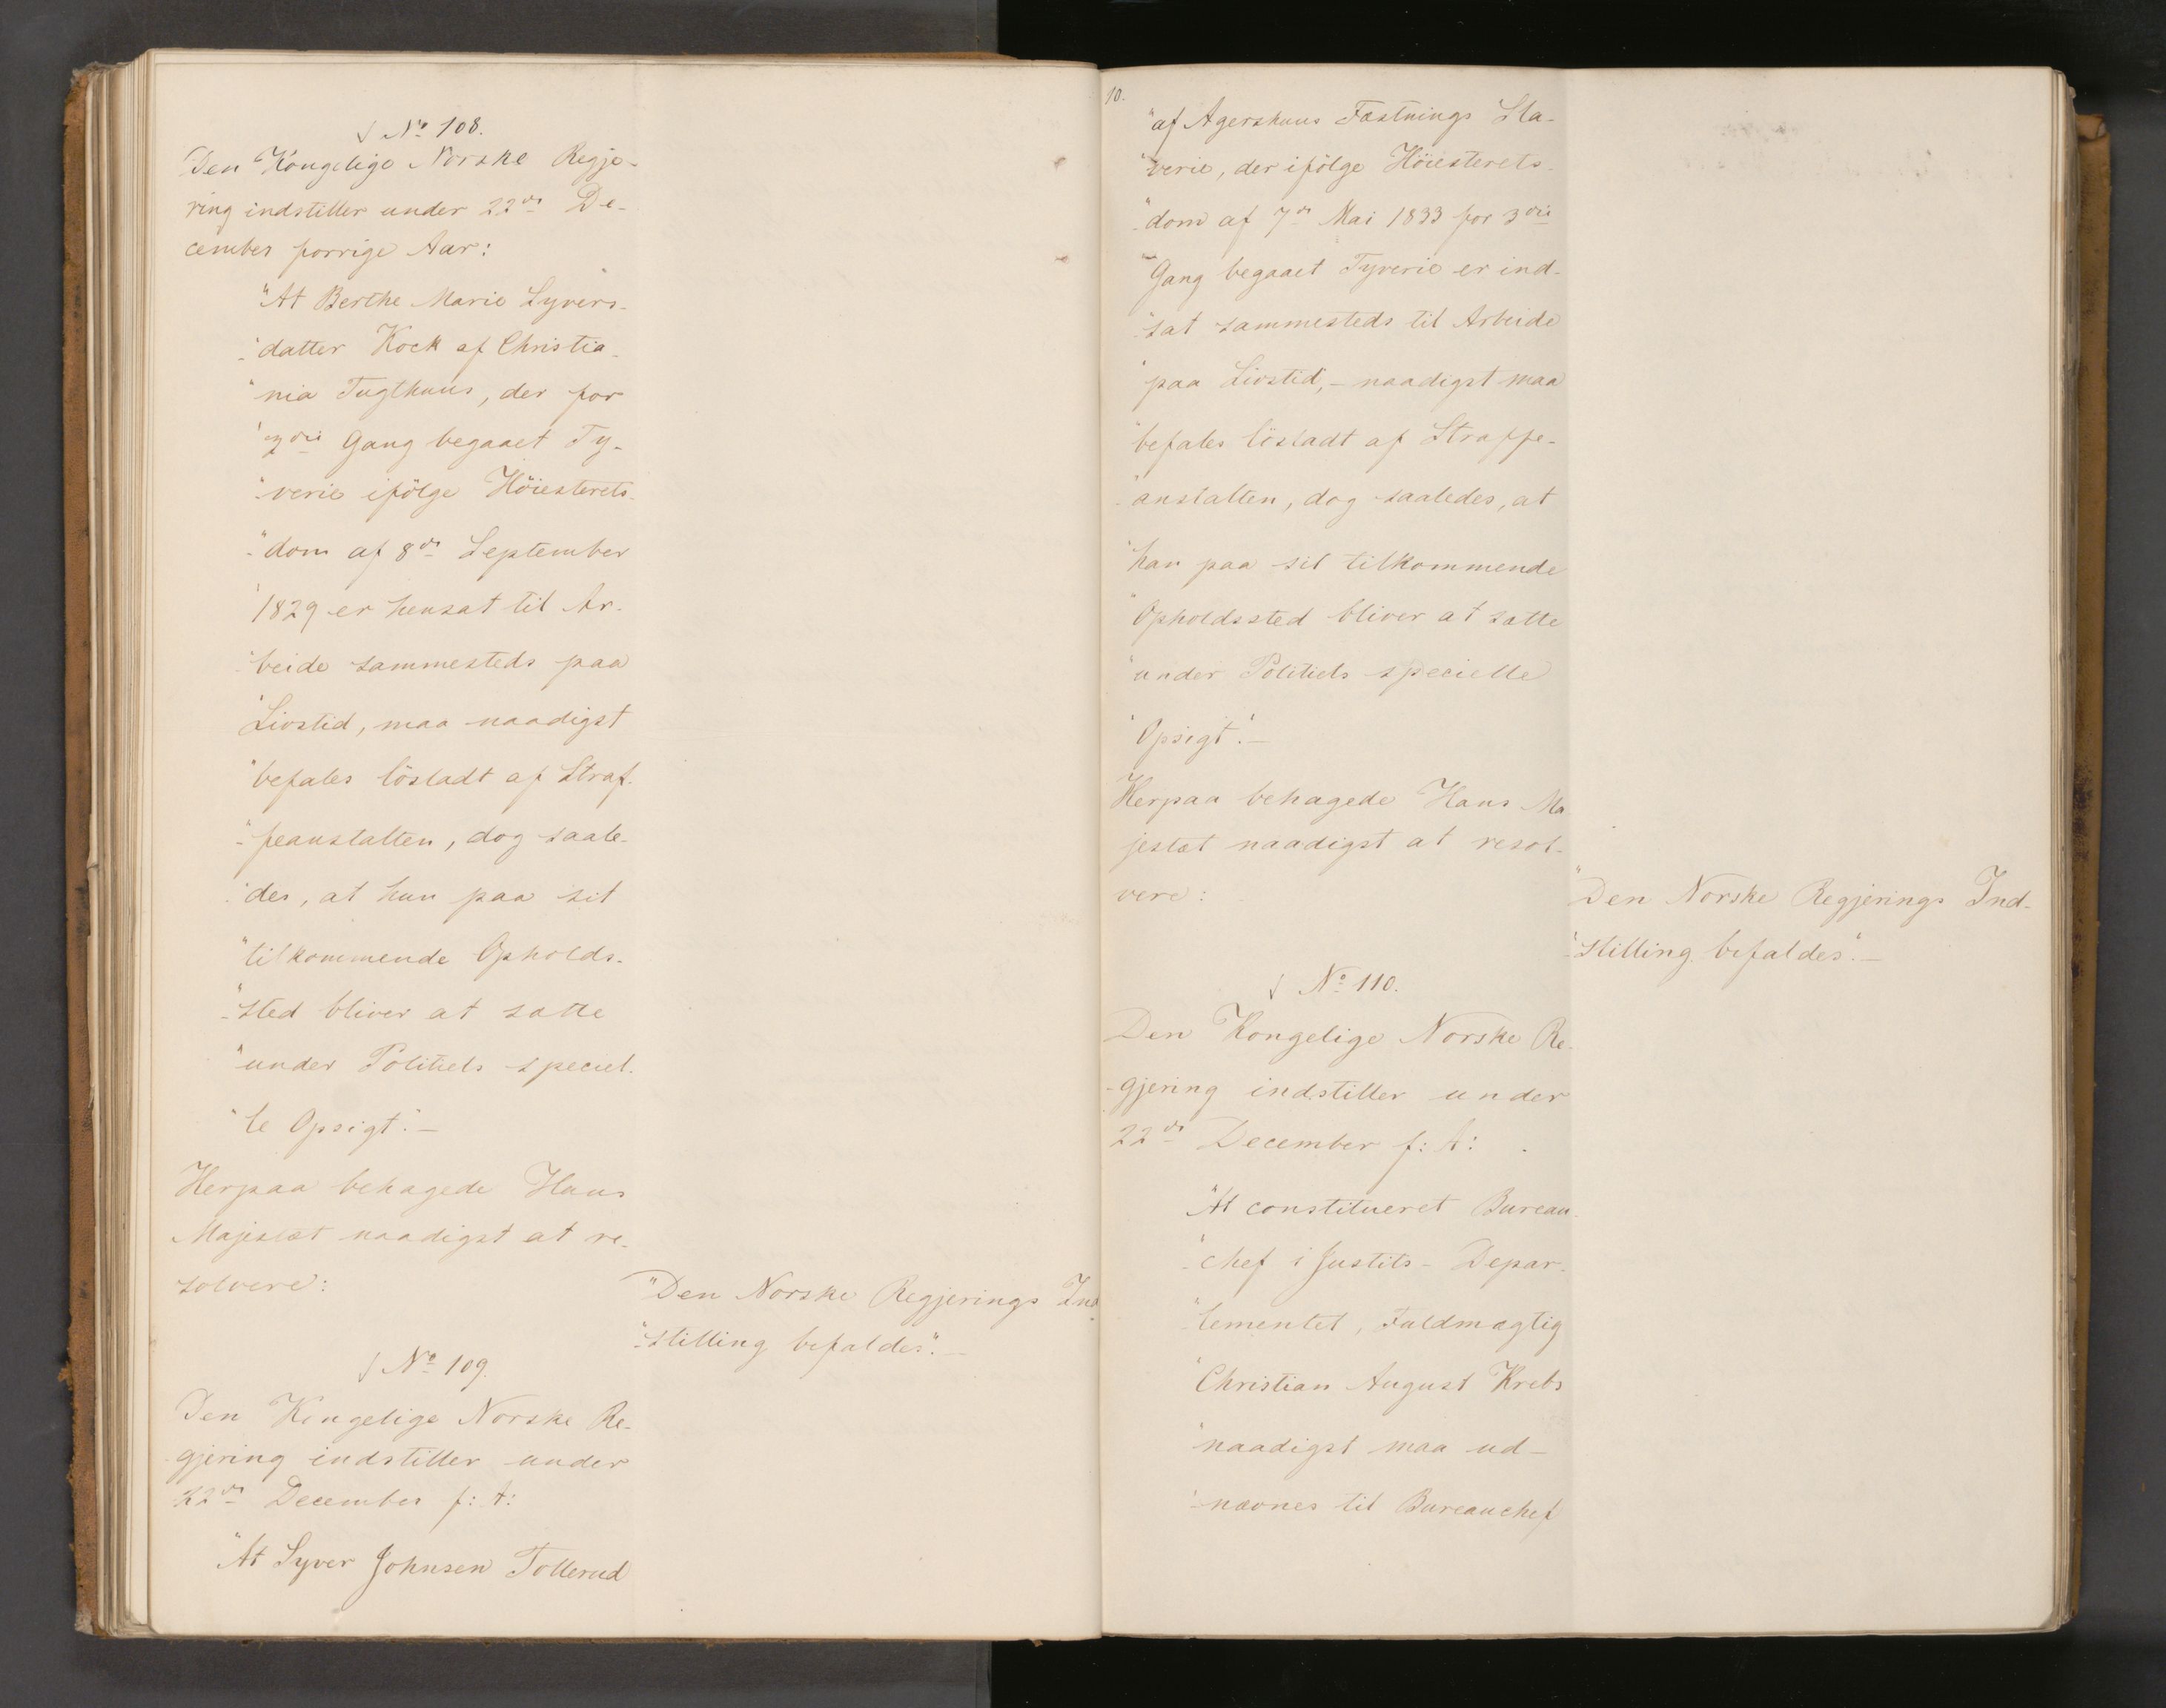 √ No 108.
Den Kongelige Norske Regje-
ring indstiller under 22de De-
cember forrige Aar:
"At Berthe Marie Syvers-
"datter Kock af Christia-
"nia Tugthuus, der for
"3die Gang begaaet Ty-
"verie ifölge Höiesterets-
"dom af 8de September
"1829 er hensat til Ar-
"beide sammesteds paa
"Livstid, maa naadigst
"befales lösladt af Straf-
"feanstalten, dog saale-
"des, at hun paa sit
"tilkommende Opholds-
"sted bliver at sætte
"under Politiets speciel-
"le Opsigt".—
Herpaa behagede Hans
Majestæt naadigst at re-
solvere:
"Den Norske Regjerings Ind-
"stilling befaldes".—
√ No 109.
Den Kongelige Norske Re-
gjering indstiller under
22de December f: A:
"At Syver Johnsen Tollerud
10.
"af Agershuus Fæstnings Sla-
"verie, der ifölge Höiesterets-
"dom af 7de Mai 1833 for 3die
"Gang begaaet Tyverie er ind-
"sat sammesteds til Arbeide
"paa Livstid,- naadigst maa
"befales lösladt af Straffe-
"anstalten, dog saaledes, at
"han paa sit tilkommende
"Opholdssted bliver at sætte
"under Politiets specielle
"Opsigt".—
Herpaa behagede Hans Ma-
jestæt naadigst at resol-
vere:
"Den Norske Regjerings Ind-
"stilling befaldes".—
√ No 110.
Den Kongelige Norske Re-
gjering indstiller under
22de December f: A:
"At constitueret Bureau-
"chef i Justits-Depar-
"tementet, Fuldmægtig
"Christian August Krebs
"naadigst maa ud-
"nævnes til Bureauchef